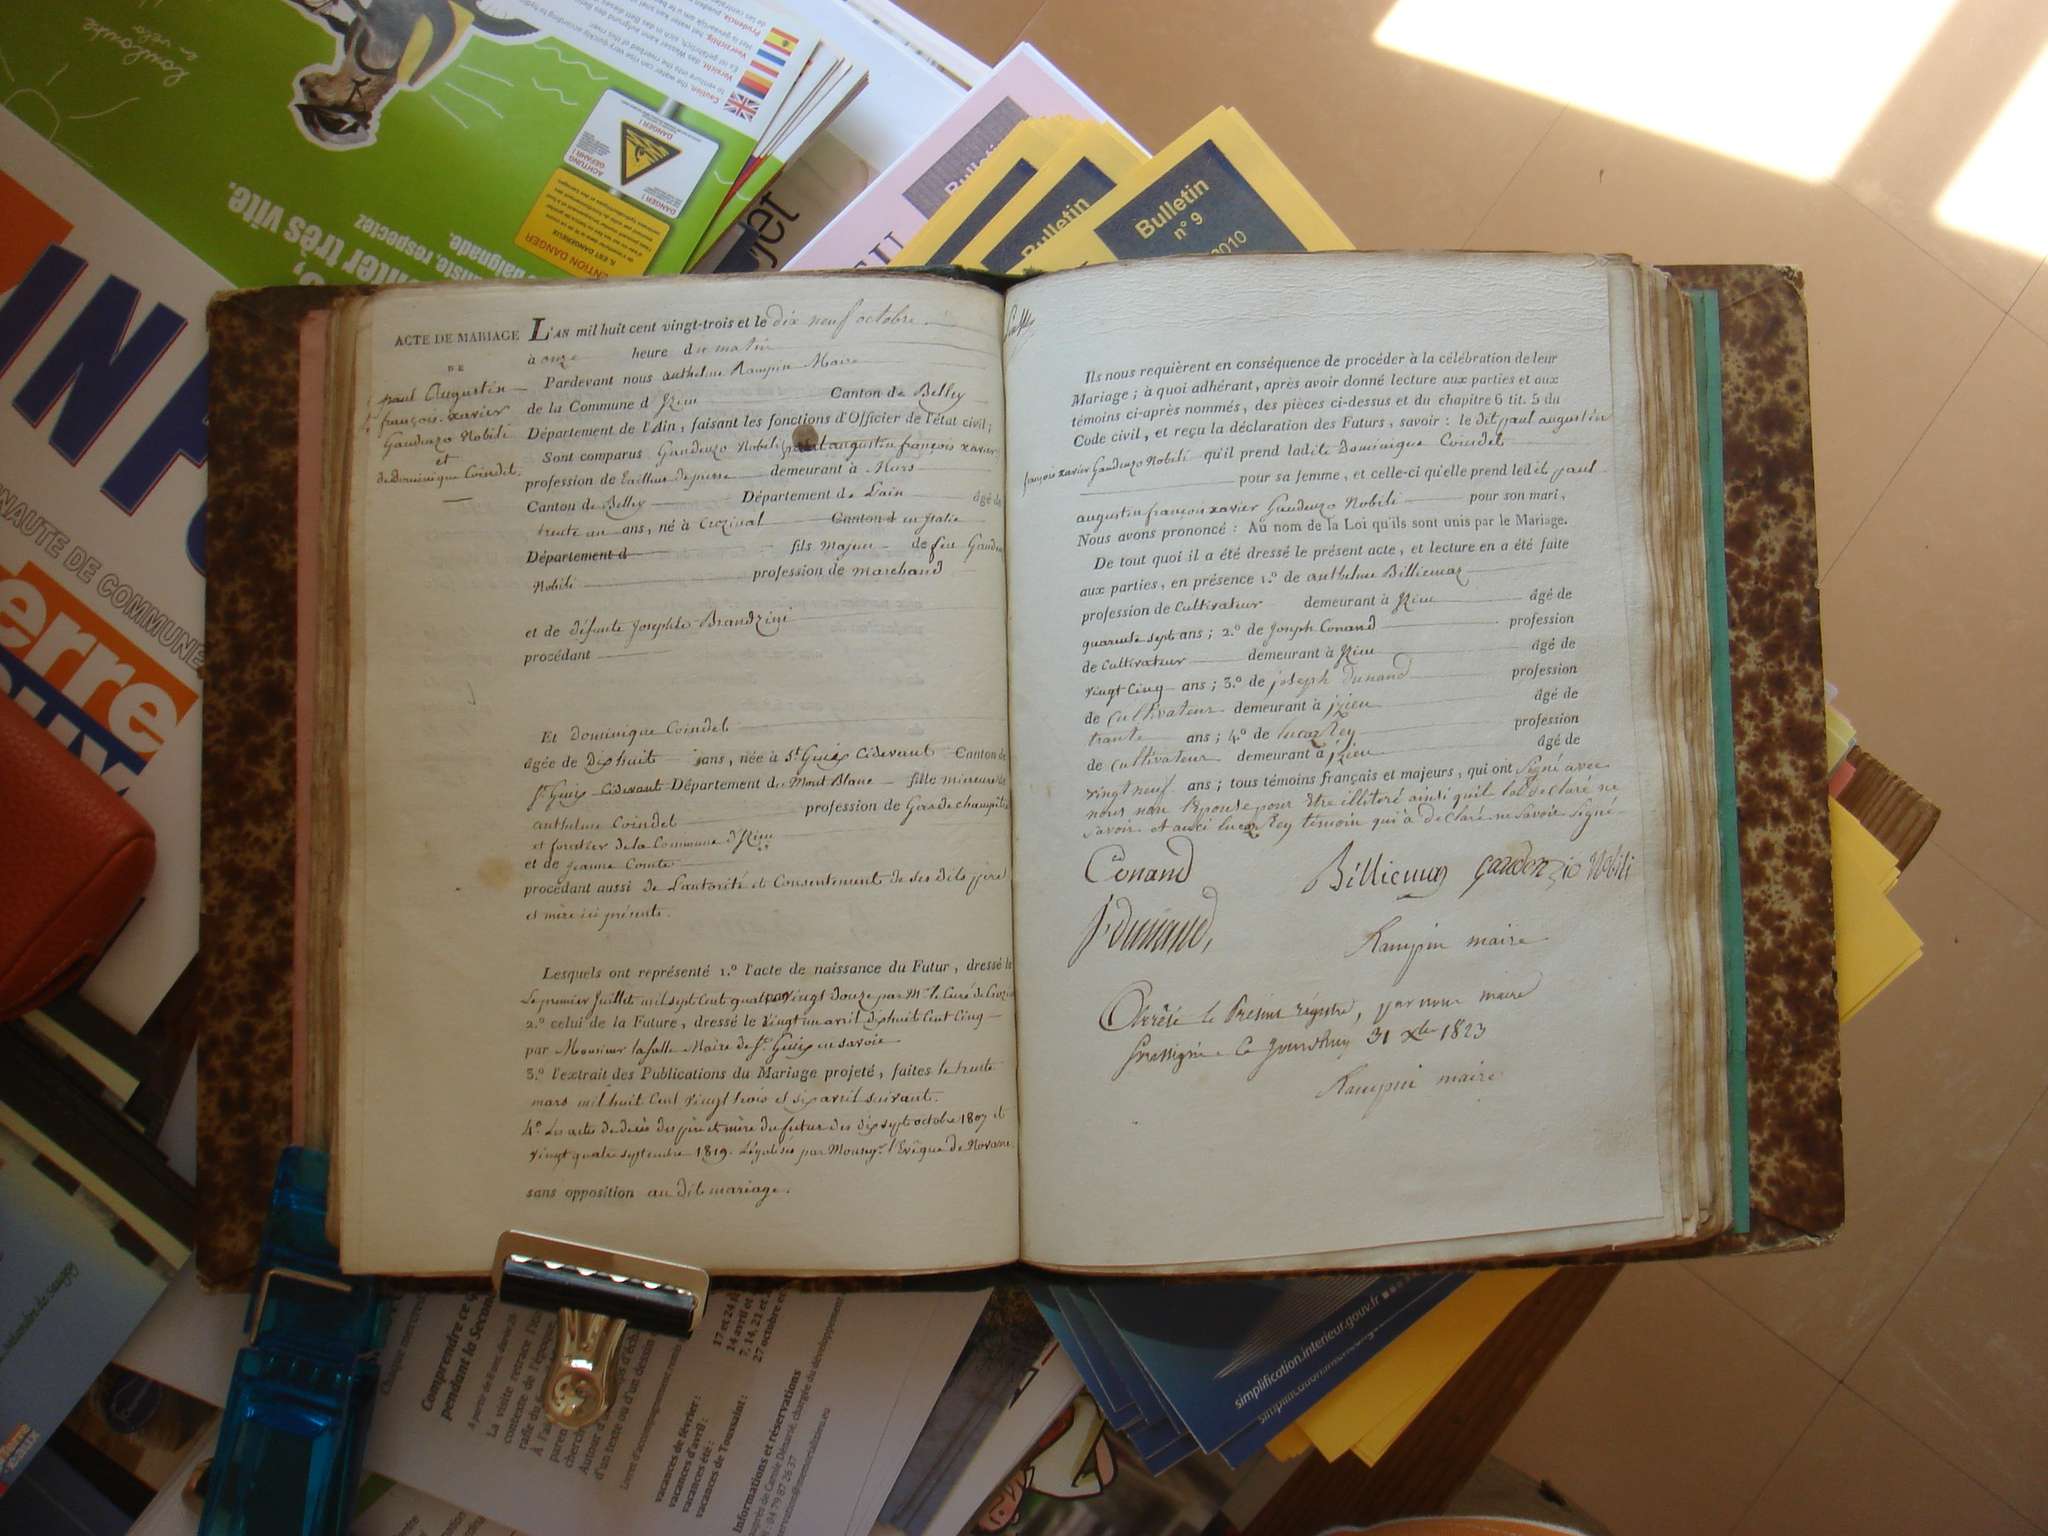 ACTE DE MARIAGE
DE
paul Augustin
françois-xavier
Gaudenzo Nobili
et
de Dominique Coindet.
L'AN mil huit cent vingt-trois et le dix neuf octobre
à onze heure du matin
Pardevant nous anthelme Rampin Maire
de la Commune d'Izieu Canton de Belley
Département de l'Ain, faisant les fonctions d'Officier de l'état civil;
Sont comparus Gaudenzo Nobili paul augustin françois xavier
profession de tailleur de pierre demeurant à Murs
Canton de Belley Département de L'ain âgé de
trente un ans, né à Canton d en Italie
Département d fils Majeur de feu
Nobili profession de marchand
et de défunte Josephte Brandzini
procédant
Et Dominique Coindet
âgée de Dixhuit ans, née à St. Genix Cidevant Canton de
St. Genix Cidevant Département du Mont Blanc fille mineure de
anthelme Coindet profession de Garde champêtre
et forestier de la Commune d'Izieu
et de Jeanne Comte
procédant aussi de L'autorité et Consentement de ses dits père
et mère ici présents.
Lesquels ont représenté 1.º l'acte de naissance du Futur, dressé le
Le premier Juillet mil sept Cent quatre vingt douze par Mr. le Curé de
2.º celui de la Future, dressé le vingt un avril dix huit Cent Cinq
par Monsieur lasalle Maire de St. Genix en savoie
3.º l'extrait des Publications du Mariage projeté, faites le trente
mars mil huit Cent vingt trois et six avril suivant.
4.º Les actes de decès des père et mère du futur des dix sept octobre 1807 et
vingt quatre septembre 1819. Légalisés par Monsgr. l'Evêque de Novarre
sans opposition au dit mariage.
Ils nous requièrent en conséquence de procéder à la célébration de leur
Mariage; à quoi adhérant, après avoir donné lecture aux parties et aux
témoins ci-après nommés, des pièces ci-dessus et du chapitre 6 tit. 5 du
Code civil, et reçu la déclaration des Futurs, savoir: le dit paul augustin
françois xavier Gaudenzo Nobili qu'il prend ladite Dominique Coindet
pour sa femme, et celle-ci qu'elle prend ledit paul
augustin françois xavier Gaudenzo Nobili pour son mari,
Nous avons prononcé: Au nom de la Loi qu'ils sont unis par le Mariage.
De tout quoi il a été dressé le présent acte, et lecture en a été faite
aux parties, en présence 1.º de anthelme Billiemaz
profession de Cultivateur demeurant à Izieu âgé de
quarente sept ans; 2.º de Joseph Conand profession
de Cultivateur demeurant à Izieu âgé de
vingt Cinq ans; 3.º de joseph dunand profession
de cultivateur demeurant à izieu âgé de
trante ans; 4.º de lucas Rey profession
de cultivateur demeurant à izieu âgé de
vingt neuf ans; tous témoins français et majeurs, qui ont signé avec
nous non l'épouse pour être illitéré ainsi qu'il l'ont déclaré ne
savoir et aussi lucas Rey témoin qui a déclaré ne savoir signé.
Conand Billiemaz gaudenzio Nobili
J. dunand, Rampin maire
Arrêté le Présent régistre, par nous maire
soussigné Ce jourd'huy 31 Xbre 1823
Rampin maire
Bulletin
n° 9
2010
Bulletin
ATTENTION DANGER
DANGER!
ACHTUNG
GEFAHR!
INFO
erre
Comprendre ce
pendant la Second
vacances de février:
vacances d'avril:
vacances été:
vacances de Toussaint:
17 et 24
14 avril et
7, 14, 21 et
27 octobre
Informations et réservations
simplification.interieur.gouv.fr